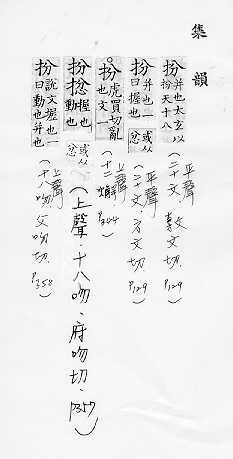 集韻
扮 并也太玄以扮天十八
（平聲·二十文·敷文切·P129）
扮 并也一曰握也 或从忿
（平聲·二十文·方文切·P129）
扮 虎買切亂也文一
（上聲·十二蟹·P344）
扮㧗 握也動也 或从忿
（上聲·十八吻·府吻切·P357）
扮 說文握也一曰動也并也
（上聲·十八吻·父吻切·P358）